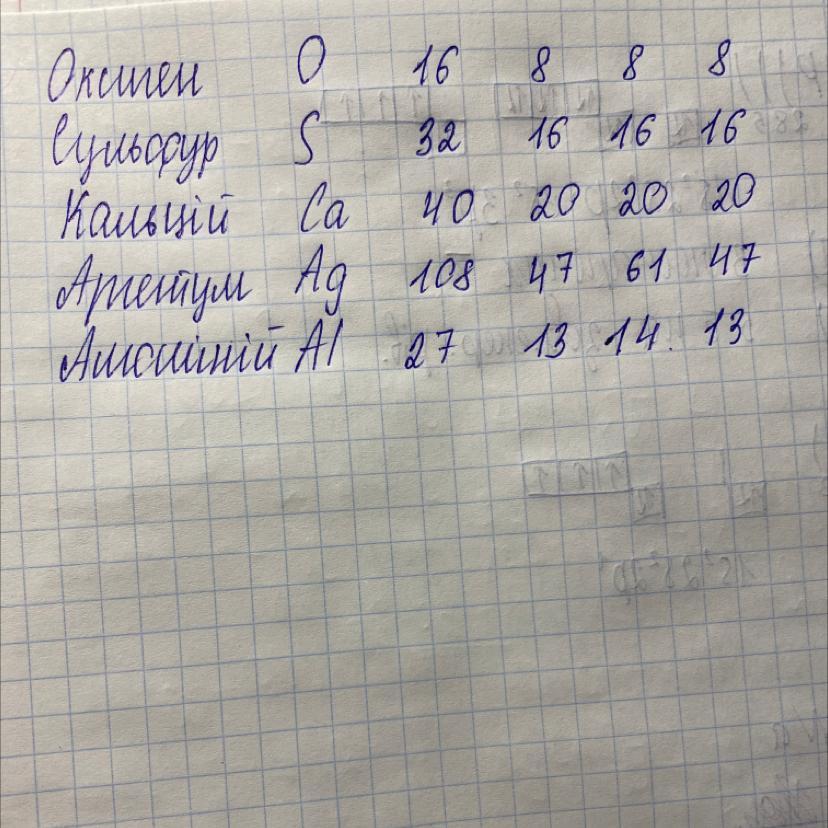 Оксиген O 16 8 8 8
Сульфур S 32 16 16 16
Кальцій Ca 40 20 20 20
Аргентум Ag 108 47 61 47
Алюміній Al 27 13 14 13